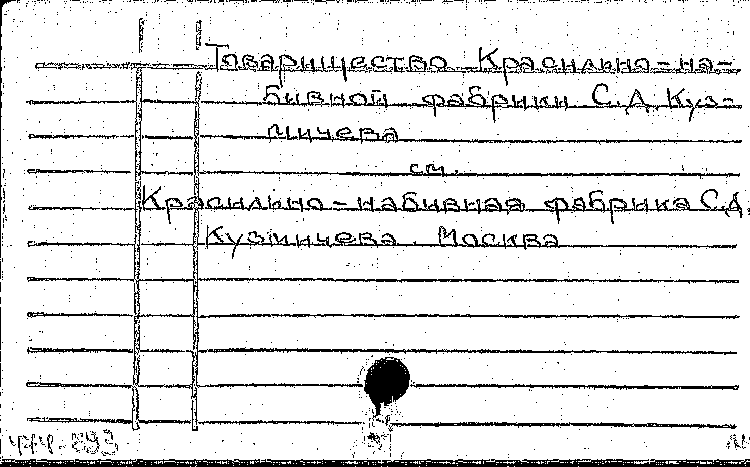 Товарищество Красильно-на-
бивной фабрики С.Д. Куз-
мичева
см.
Красильно-набивная фабрика С.Д.
Кузмичева. Москва